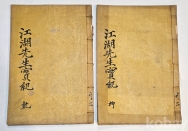 江湖先生實記 乾
江湖先生實記 坤